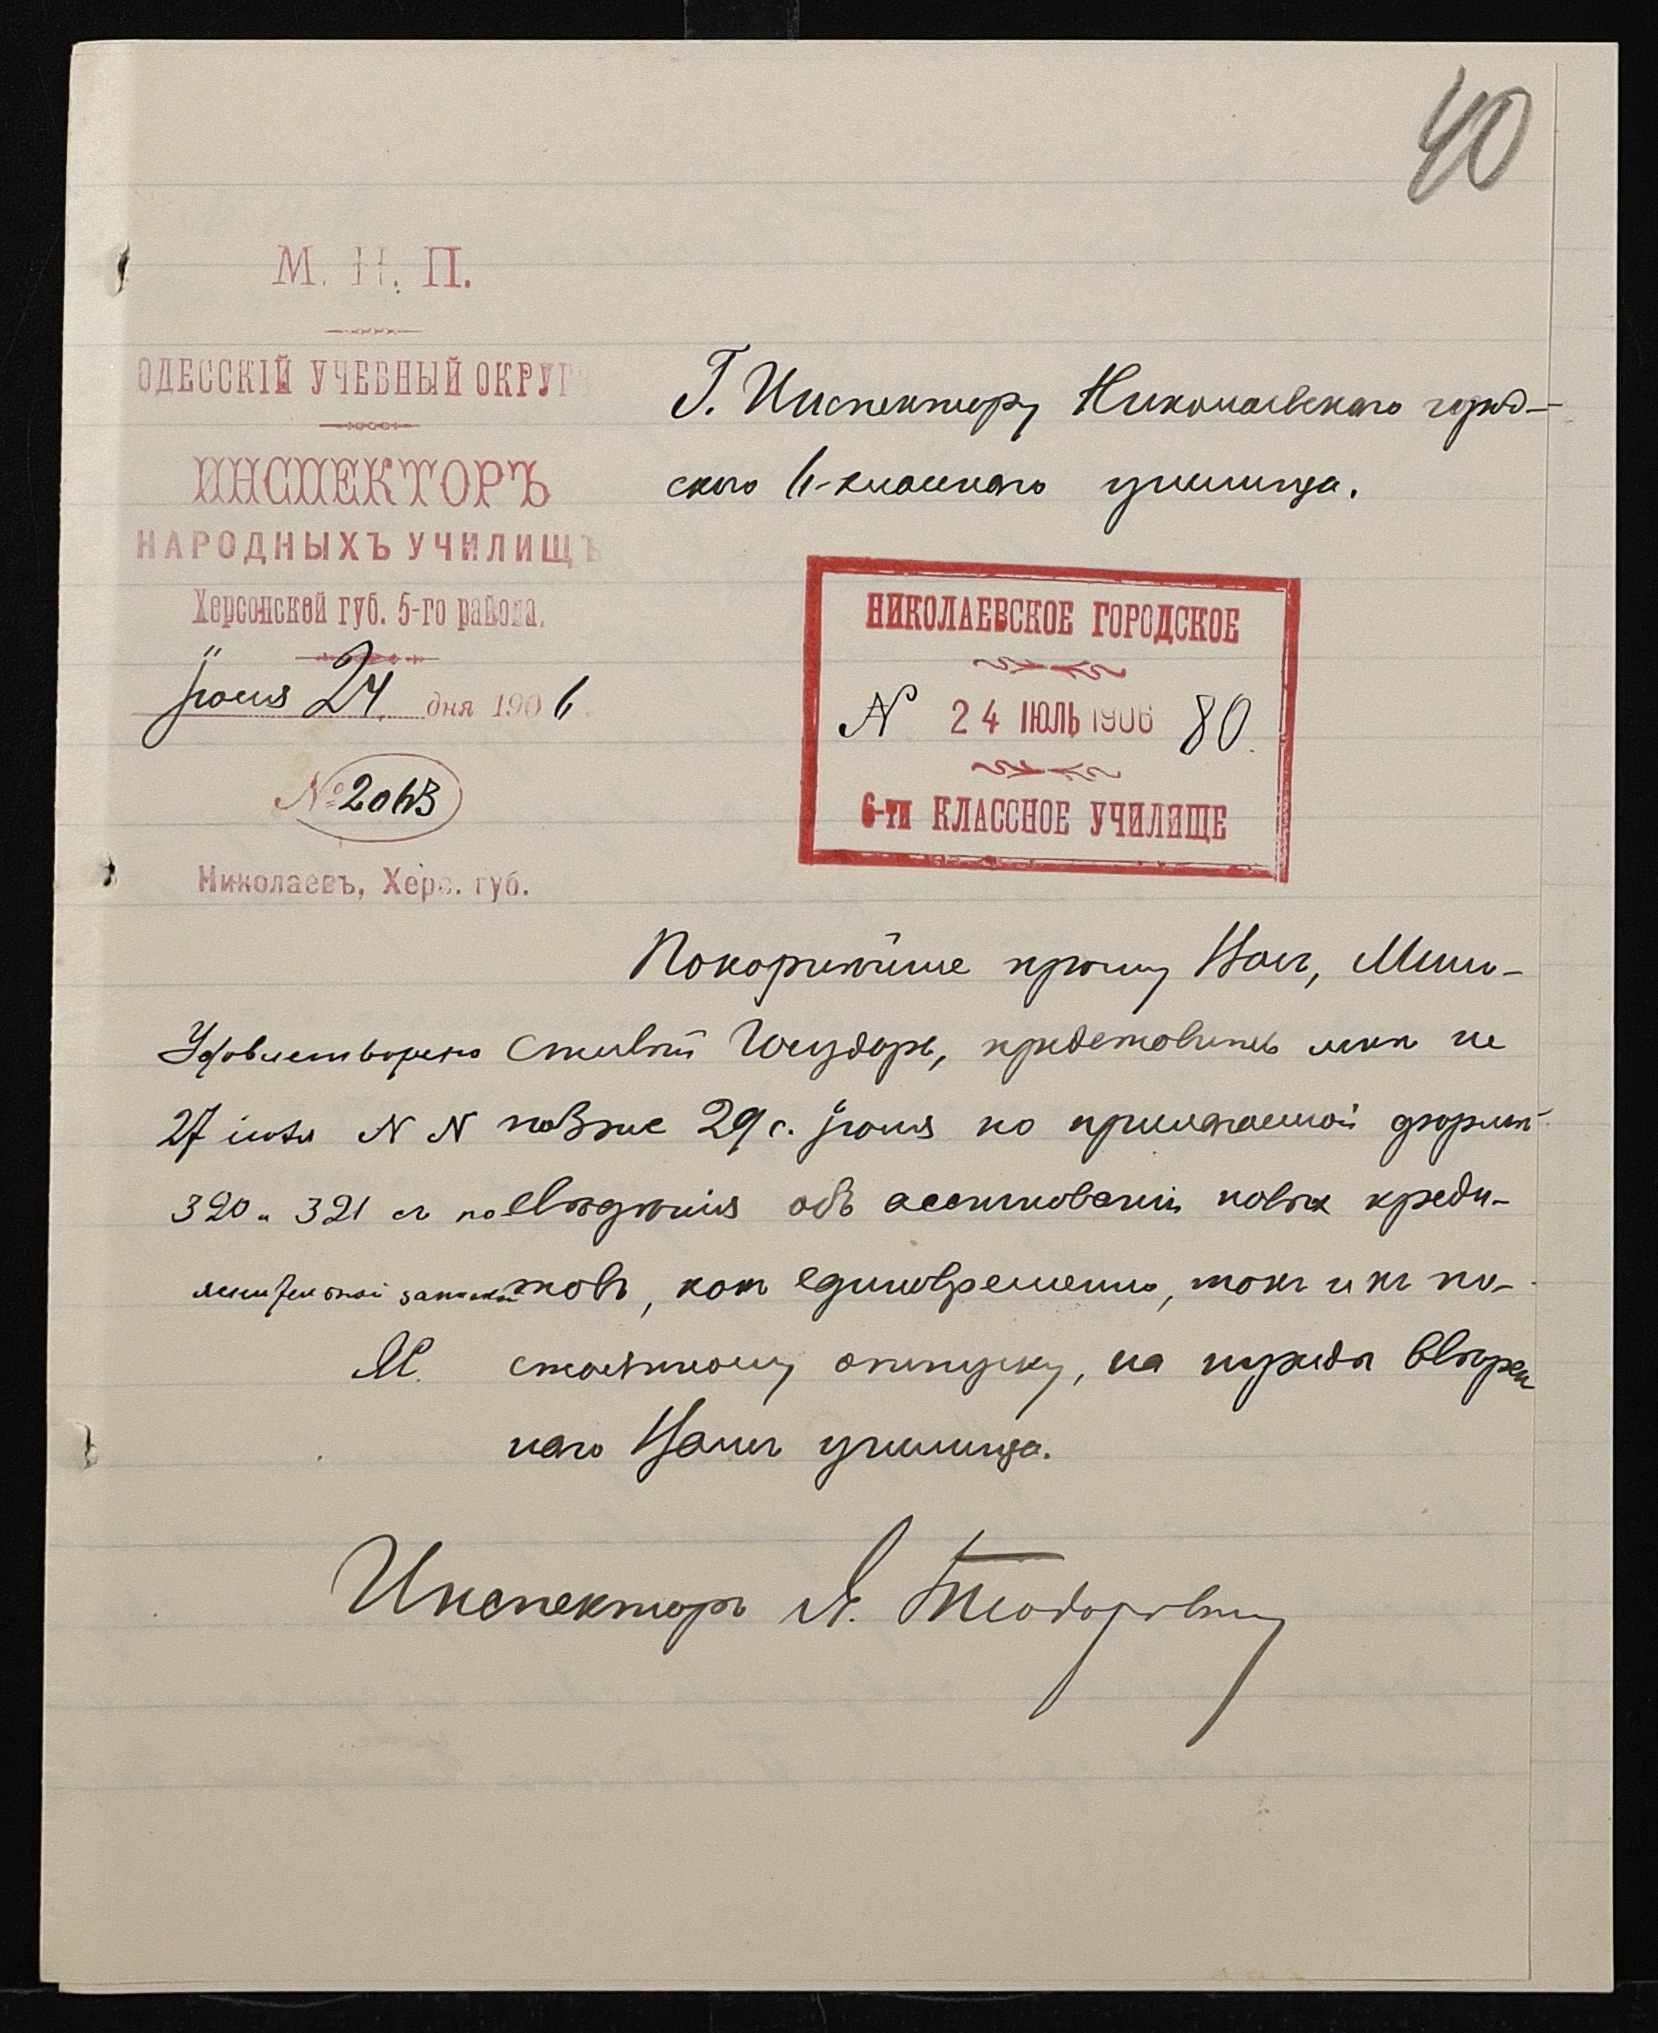 40
М. Н. П.
ОДЕССКІЙ УЧЕБНЫЙ ОКРУГЪ
ИНСПЕКТОРЪ
НАРОДНЫХЪ УЧИЛИЩЪ
Херсонской губ. 5-го района.
Іюля 24 дня 1906.
№ 2063
Николаевъ, Херс. губ.
Г. Инспектору Николаевскаго город-
ского 6-класснаго училища.
НИКОЛАЕВСКОЕ ГОРОДСКОЕ
N 24 ІЮЛЬ 1906 80.
6-ти КЛАССНОЕ УЧИЛИЩЕ
Покорнѣйше прошу Васъ, Мило-
стивый Государь, представить мнѣ не
позже 29 с. Іюля по прилагаемой формѣ
свѣдѣнія объ ассигнованіи новыхъ креди-
товъ, какъ единовременно, такъ и къ по-
стоянному отпуску, на нужды ввѣрен
наго Вамъ училища.
Удовлетворено
27 іюля N N
320 и 321 съ по
яснительной запиской
Инспекторъ А. Теодоровичъ